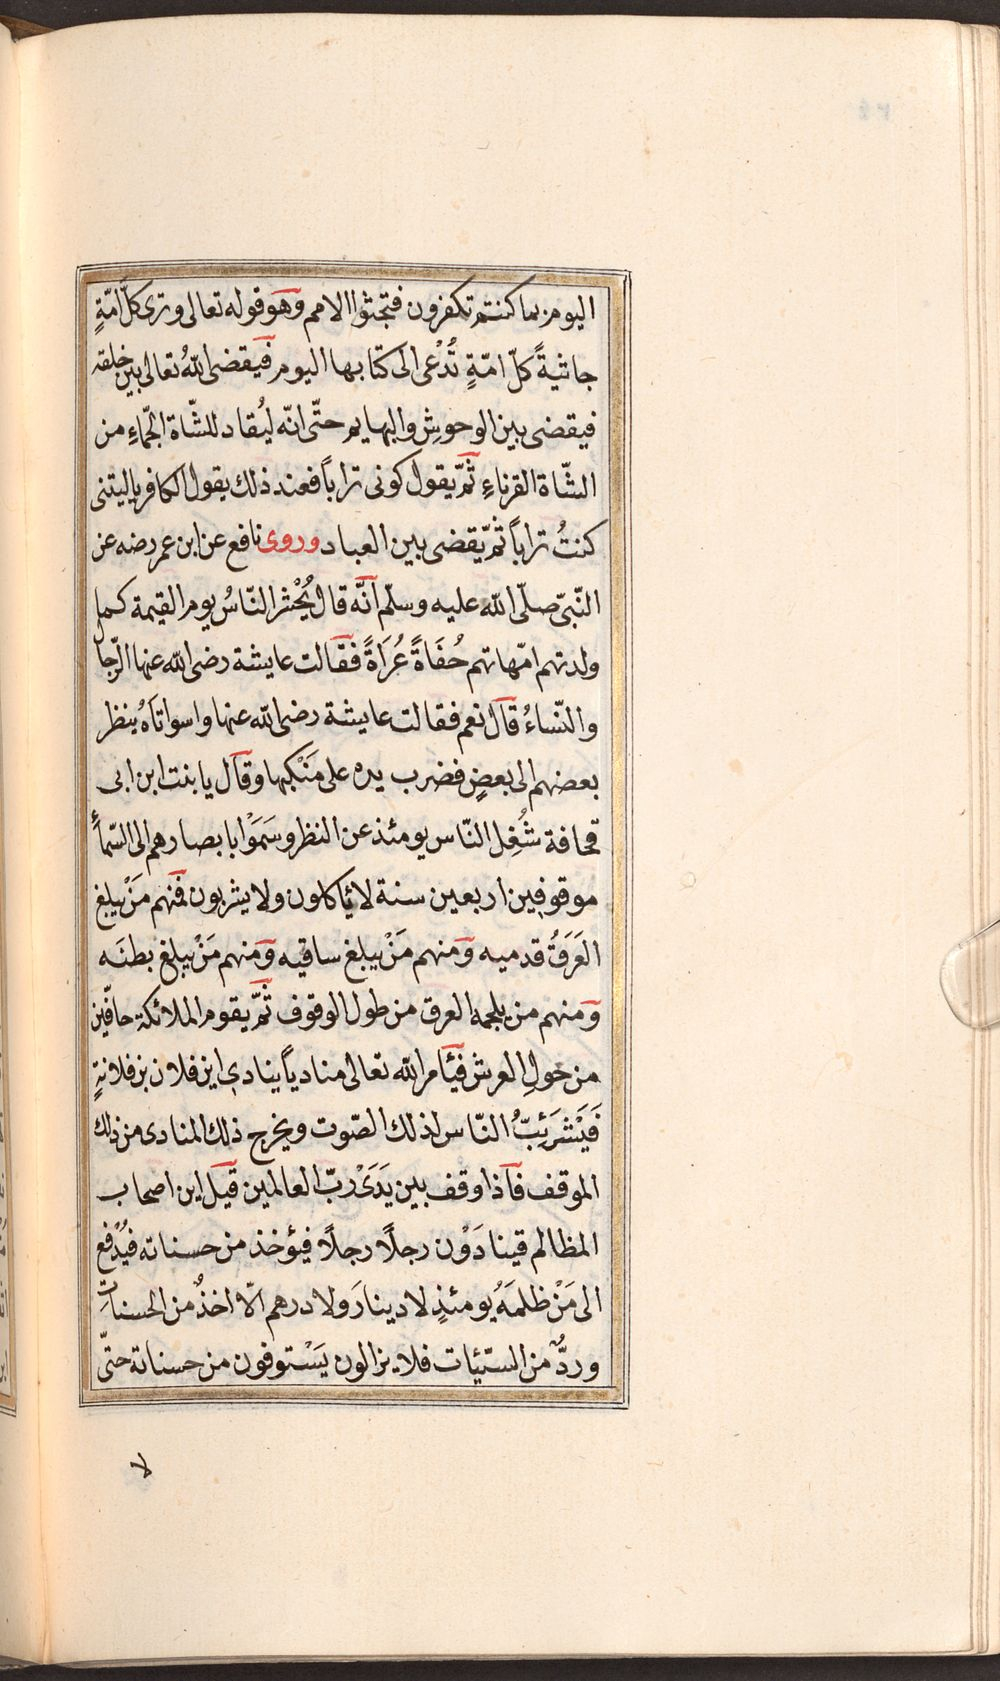 اليوم بما كنتم تكفرون فتجثوا الامم وهو قوله تعالى وترى كلّ امّةٍ
جاثيةً كلّ امّةٍ تُدْعى الى كتابها اليوم فيقضى اللّٰهُ تعالى بين خلقه
فيقضى بين الوحوشِ والبهايم حتّى انّه ليُقاد للشّاة الجّماءِ من
الشّاة القرناءِ ثمّ يقول كونى تراباً فعند ذلك يقول الكافر ياليتنى
كنتُ تراباً ثمّ يقضى بين العباد وروى نافع عن ابن عمر رضه عن
النّبىّ صلّى اللّٰه عليه وسلّم انّه قال يُحْشر النّاسُ يوم القيمة كما
ولدتهم امّهاتهم حُفَاةً عُرَاةً فقالت عايشة رضى اللّٰه عنها الرّجال
والنّساءُ قال نعم فقالت عايشة رضى اللّٰه عنها واسواتاهُ ينظر
بعضهم الى بعضٍ فضرب يده على مَنْكبها وقال يا بنت ابن ابى
قحافة شُغِل النّاس يومئذ عن النظر وسَمَوْا بابصارهم الى السّمأ
موقوفين اربعين سنة لا يأكلون ولا يشربون فمنهم مَنْ يبلغ
العَرَقُ قدميه ومنهم مَنْ يبلغ ساقيه ومنهم مَنْ يبلغ بطنَه
ومنهم من يلجمه العرق من طول الوقوف ثمّ يقوم الملائكة حافّين
من حولِ العرش فيأمر اللّٰه تعالى منادياً ينادى اين فلان بن فلانةٍ
فَيَشرَئِبّ النّاس لذلك الصّوت ويخرج ذلك المنادى من ذلك
الموقف فاذا وقف بين يَدَىْ ربّ العالمين قيل اين اصحاب
المظالم فينادَوْن رجلًا رجلًا فيؤخذ من حسناته فيُدفع
الى مَنْ ظلمَهُ يومئذٍ لا دينارَ ولا درهم الّا اخذٌ من الحسناتِ
وردٌّ من السّيّئات فلا يزالون يَسْتوفون من حسناته حتّى
لا